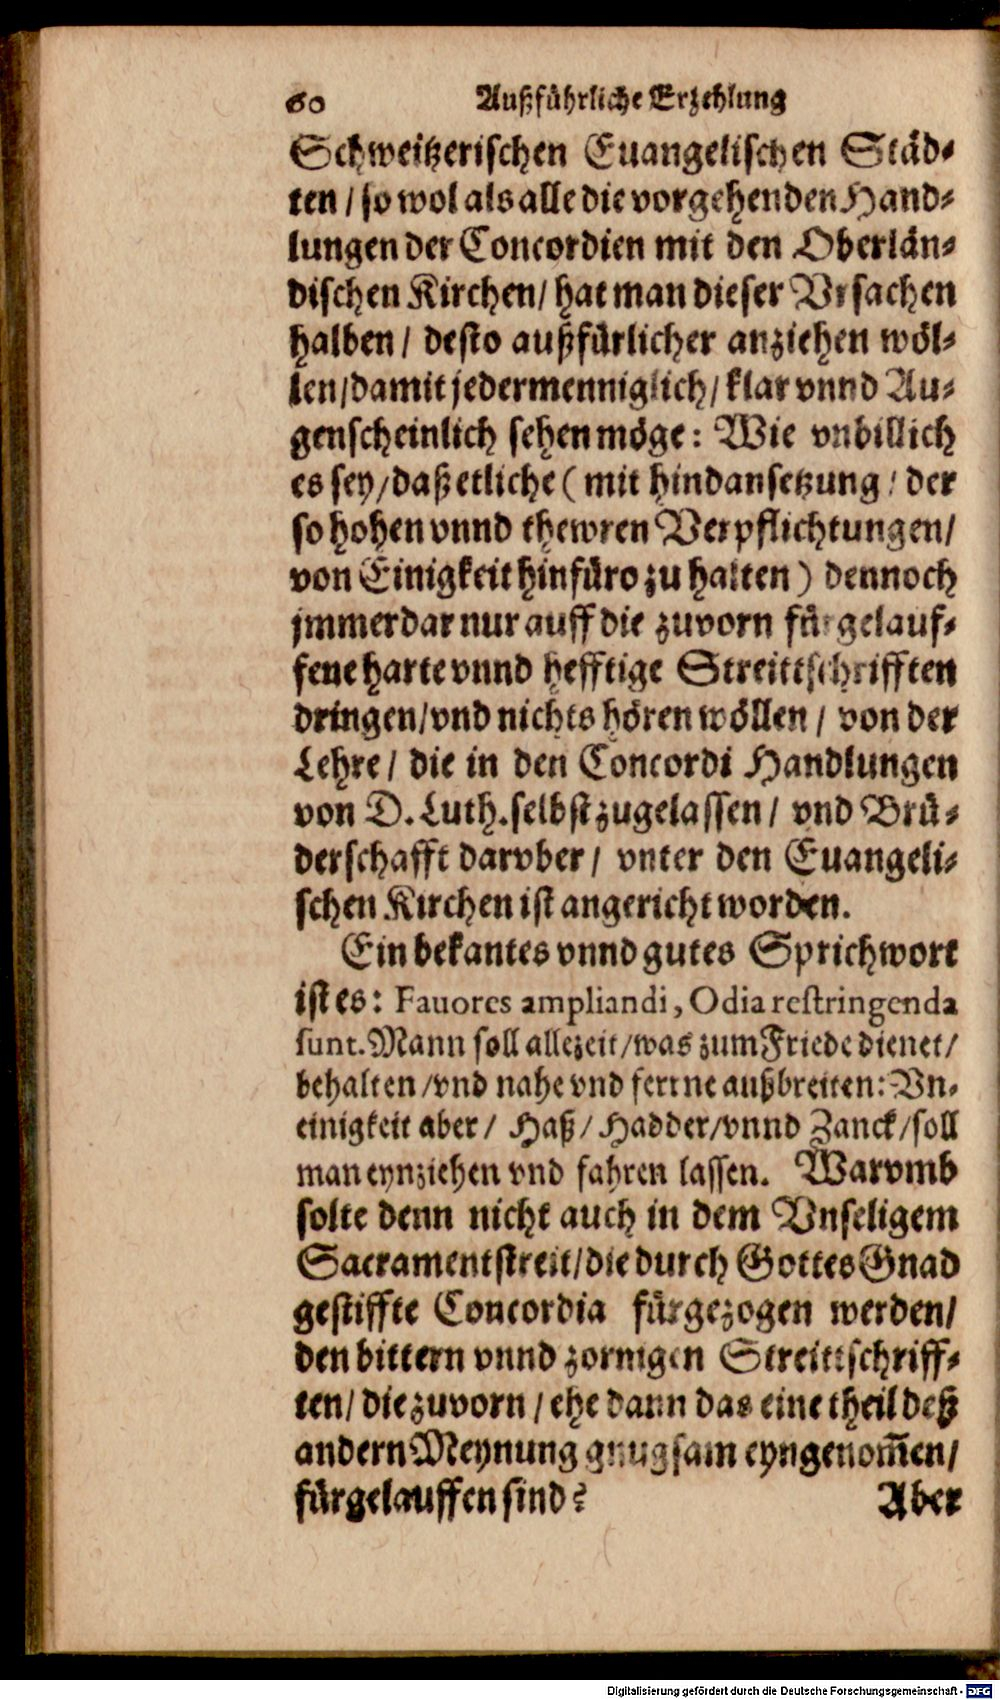 60 Außführliche Erzehlung
Schweitzerischen Euangelischen Städ-
ten / so wol als alle die vorgehenden Hand-
lungen der Concordien mit den Oberlän-
dischen Kirchen / hat man dieser Vrsachen
halben / desto außfürlicher anziehen wöl-
len / damit jedermenniglich / klar vnnd Au-
genscheinlich sehen möge: Wie vnbillich
es sey / daß etliche ( mit hindansetzung / der
so hohen vnnd thewren Verpflichtungen /
von Einigkeit hinfüro zu halten ) dennoch
jmmerdar nur auff die zuvorn fürgelauf-
fene harte vnnd hefftige Streittschrifften
dringen / vnd nichts hören wöllen / von der
Lehre / die in den Concordi Handlungen
von D. Luth. selbst zugelassen / vnd Brü-
derschafft darvber / vnter den Euangeli-
schen Kirchen ist angericht worden.
Ein bekantes vnnd gutes Sprichwort
ist es: Fauores ampliandi, Odia restringenda
sunt. Mann soll allezeit / was zum Friede dienet /
behalten / vnd nahe vnd ferrne außbreiten: Vn-
einigkeit aber / Haß / Hadder / vnnd Zanck / soll
man eynziehen vnd fahren lassen. Warvmb
solte denn nicht auch in dem Vnseligem
Sacramentstreit / die durch Gottes Gnad
gestiffte Concordia fürgezogen werden /
den bittern vnnd zornigen Streittschriff-
ten / die zuvorn / ehe dann das eine theil deß
andern Meynung gnugsam eyngenom̅en /
fürgelauffen sind?
Aber
Digitalisierung gefördert durch die Deutsche Forschungsgemeinschaft - DFG